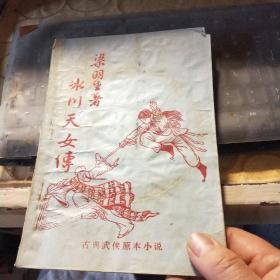 梁羽生著
冰川天女傳
古典武侠原本小说